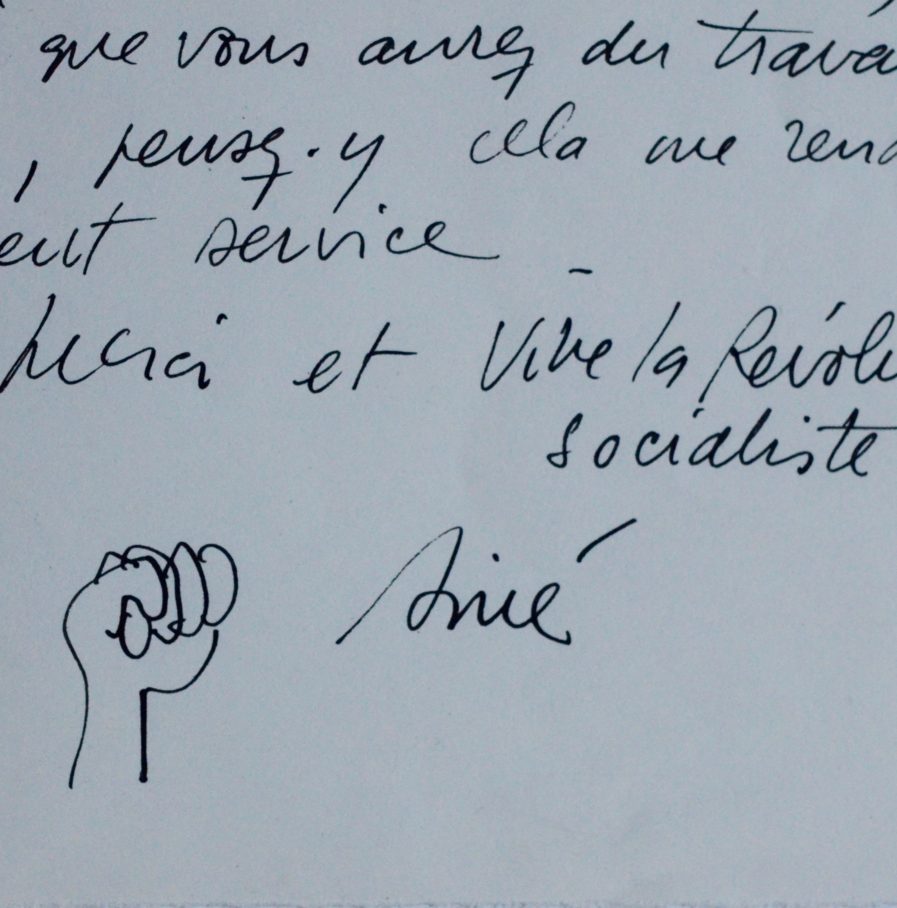 que vous aurez du trava
, pensez-y cela me rend
ent service -
Merci et Vive la Révolu
socialiste
Siné